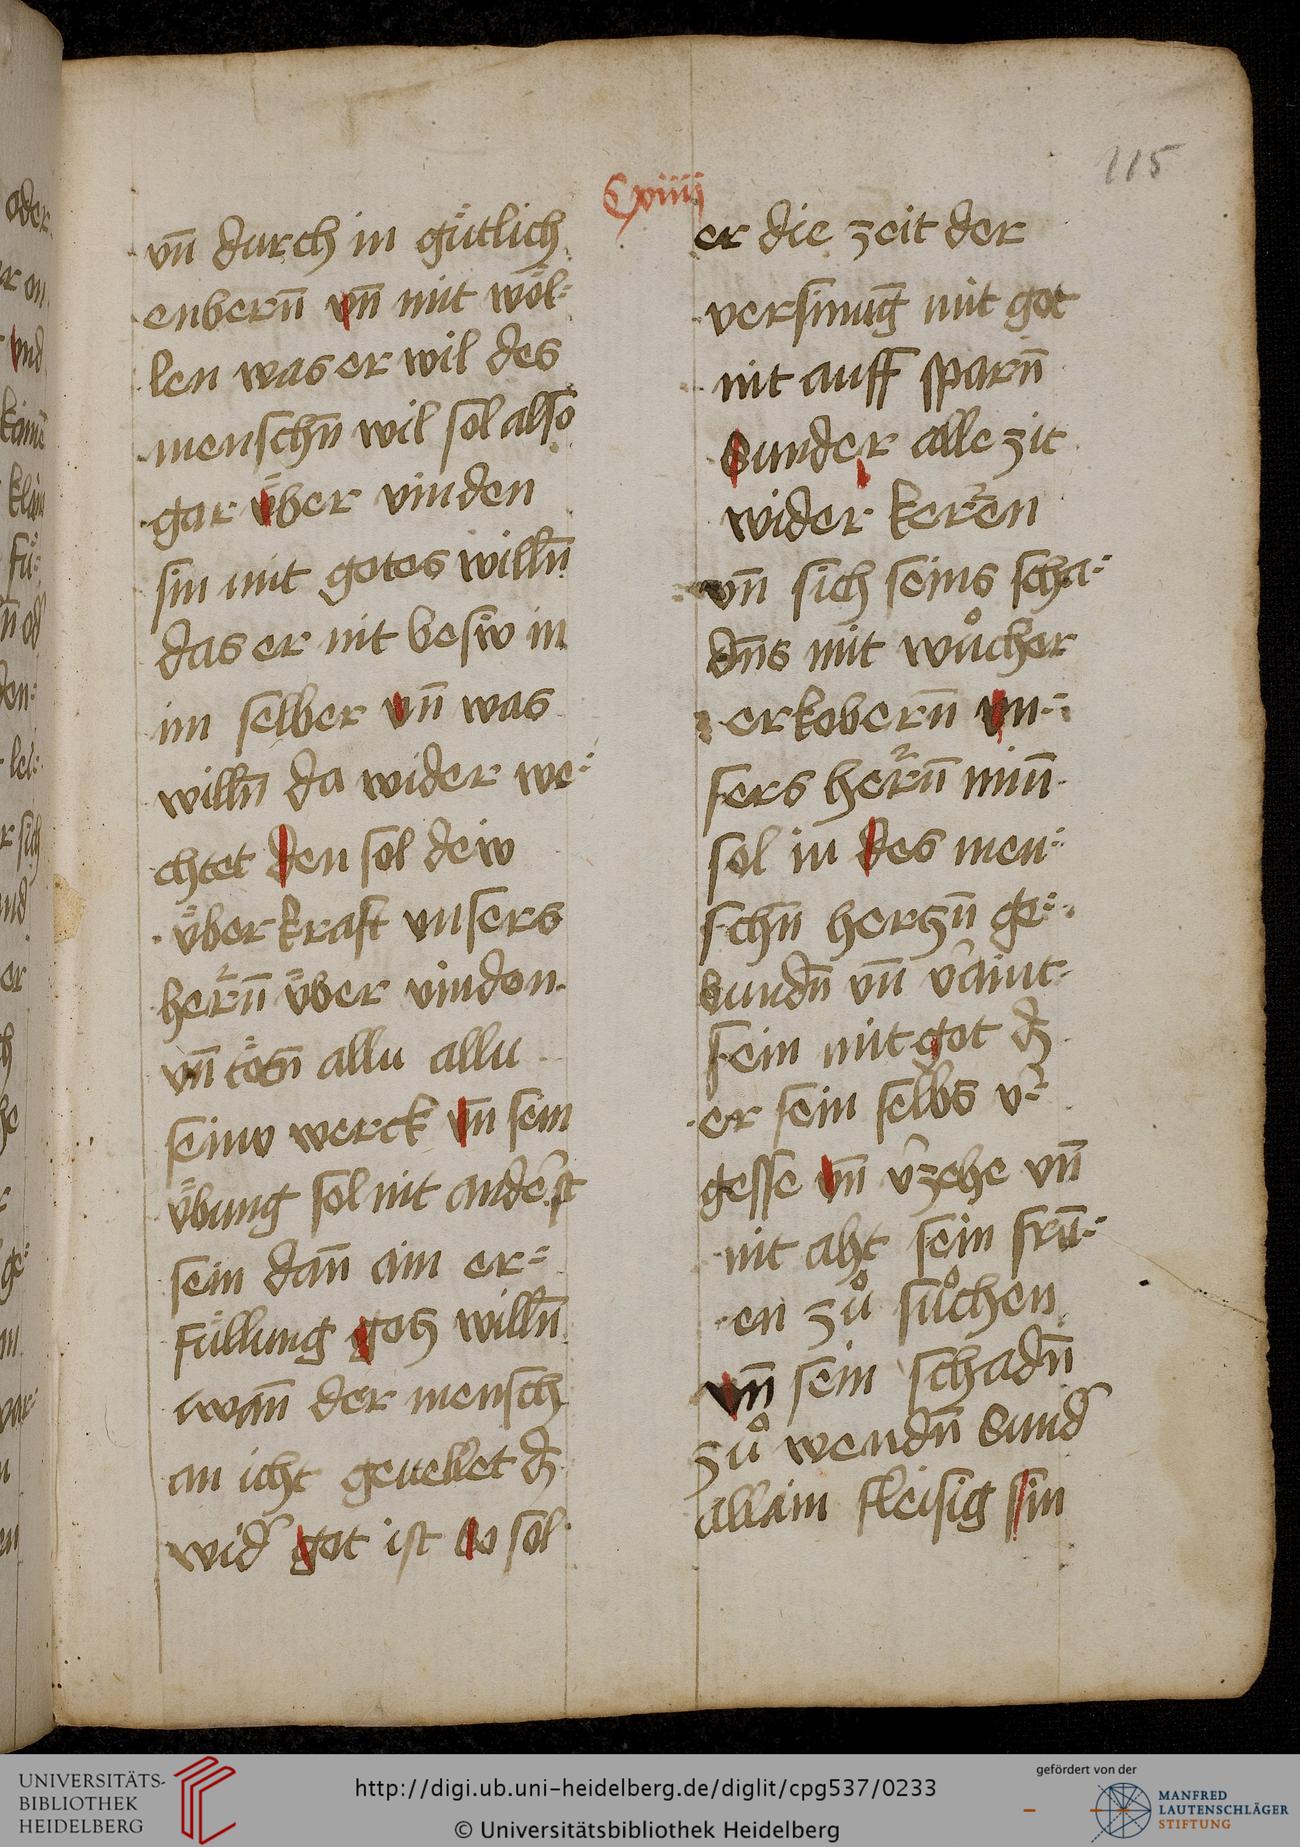 Cxviiij
115
vn̄ durch in gütlich
enbern̄ vn̄ mit wöl-
len was er wil des
menschn̄ wil sol also
gar über vinden
sin mit gotes willn̄
das er nit besiv in
im selber vn̄ was
willn̄ da wider we-
chtet den sol deiv
überkraft vnsers
herrn̄ über vinden
vn̄ tötn̄ allu allu
seinv werck vn̄ sein
übung sol nit anderst
sein dan̄ ain er-
füllung gotz willn̄
wan̄ der mensch
an icht geuellet dz
wid' got ist so sol
er die zeit der
versinung mit got
nit auff sparn̄
Sunder alle zit
wider kerren
vn̄ sich seins scha-
dn̄s mit wůcher
erkobern̄ vn-
sers herrn̄ min̄
sol in des men-
schn̄ hertzn̄ ge-
bundn̄ vn̄ v'aint
sein mit got dz
er sein selbs v'-
gesse vn̄ v'zehe vn̄
nit aht sein frū-
en zů sůchen
vn̄ sein schadn̄
zů wendn̄ Sund'
allain fleisig sin
oder
vnd
UNIVERSITÄTS-
BIBLIOTHEK
HEIDELBERG
http://digi.ub.uni-heidelberg.de/diglit/cpg537/0233
© Universitätsbibliothek Heidelberg
gefördert von der
MANFRED
LAUTENSCHLÄGER
STIFTUNG